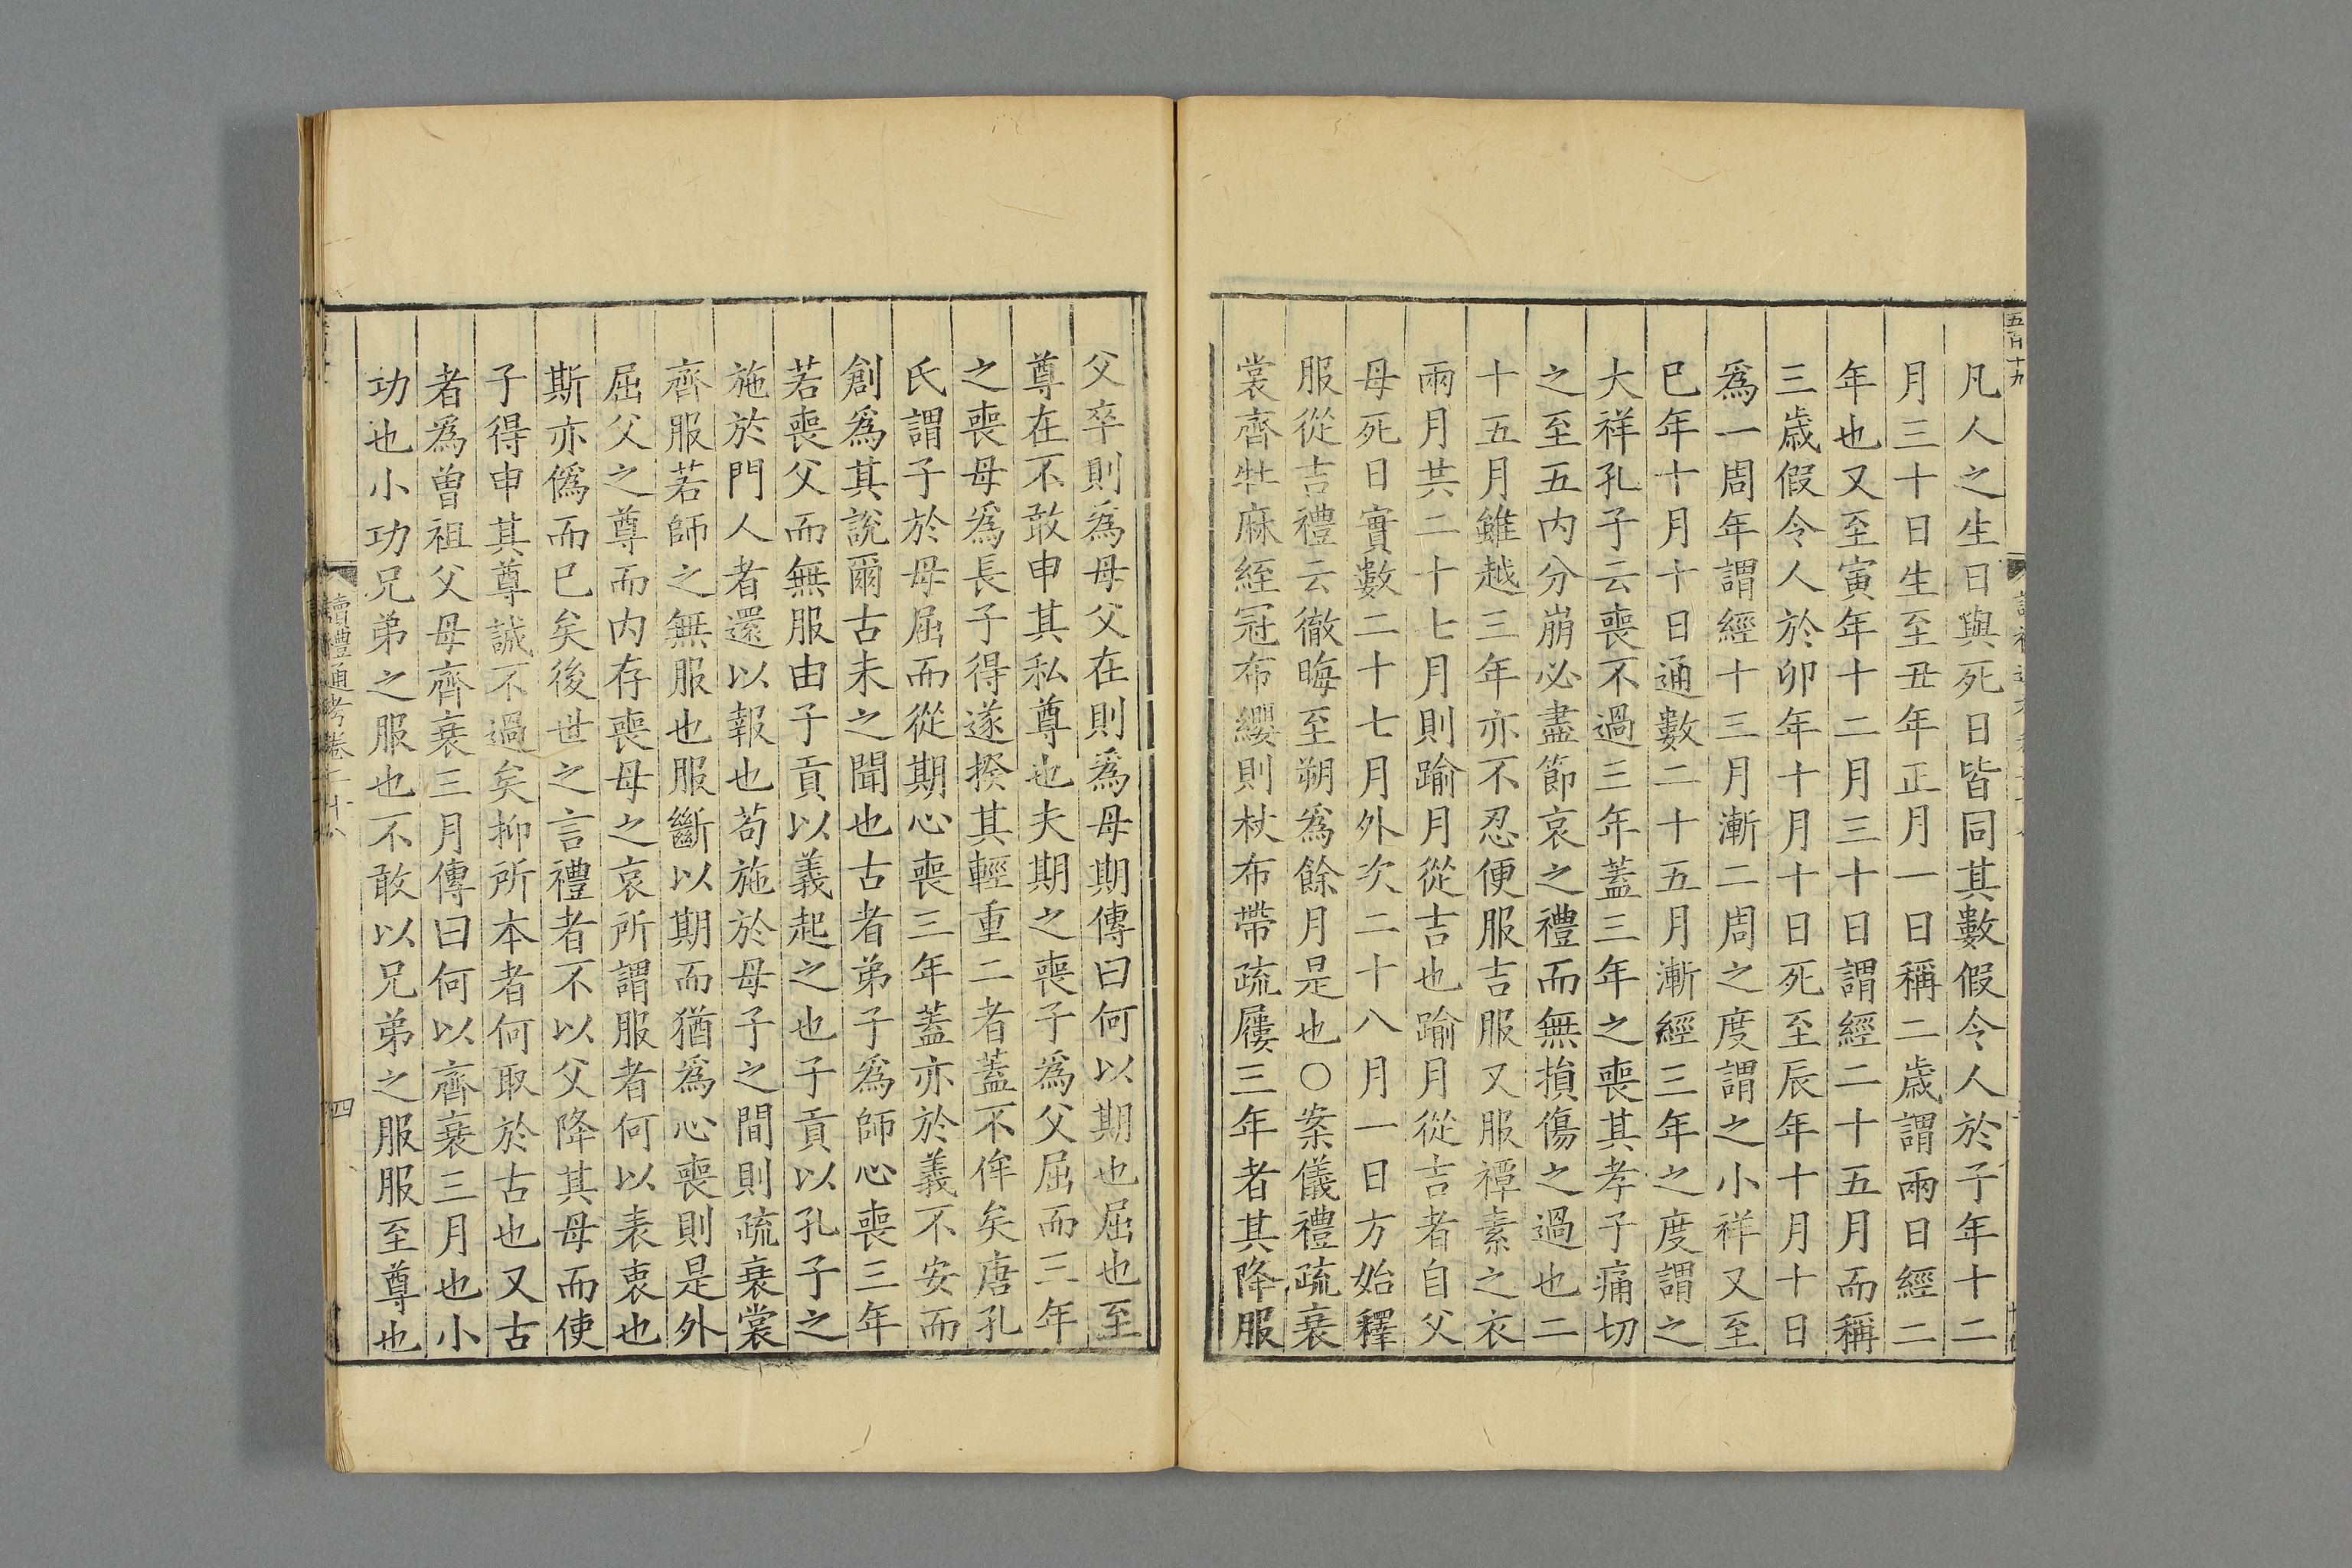 五百十九
凡人之生日與死日皆同其數假令人於子年十二
月三十日生至丑年正月一日稱二歲謂兩日經二
年也又至寅年十二月三十日謂經二十五月而稱
三歲假令人於卯年十月十日死至辰年十月十日
爲一周年謂經十三月漸二周之度謂之小祥又至
巳年十月十日通數二十五月漸經三年之度謂之
大祥孔子云喪不過三年蓋三年之喪其孝子痛切
之至五内分崩必盡節哀之禮而無損傷之過也二
十五月雖越三年亦不忍便服吉服又服禫素之衣
兩月共二十七月則踰月從吉也踰月從吉者自父
母死日實數二十七月外次二十八月一日方始釋
服從吉禮云徹晦至朔爲餘月是也○案儀禮疏衰
裳齊牡麻絰冠布纓則杖布帶疏屨三年者其降服
父卒則爲母父在則爲母期傳曰何以期也屈也至
尊在不敢申其私尊也夫期之喪子爲父屈而三年
之喪母爲長子得遂揆其輕重二者蓋不侔矣唐孔
氏謂子於母屈而從期心喪三年蓋亦於義不安而
創爲其說爾古未之聞也古者弟子爲師心喪三年
若喪父而無服由子貢以義起之也子貢以孔子之
施於門人者還以報也苟施於母子之間則疏衰裳
齊服若師之無服也服斷以期而猶爲心喪則是外
屈父之尊而内存喪母之哀所謂服者何以表衷也
斯亦僞而已矣後世之言禮者不以父降其母而使
子得申其尊誠不過矣抑所本者何取於古也又古
者爲曾祖父母齊衰三月傳曰何以齊衰三月也小
功也小功兄弟之服也不敢以兄弟之服服至尊也
讀禮通考卷二十八
四